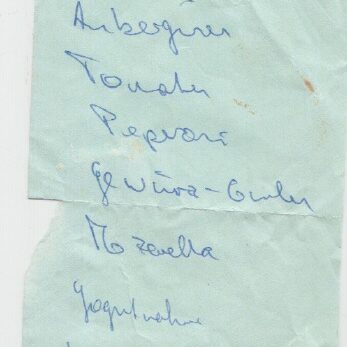 Auberginen
Tomaten
Peperoni
Gewürz-Gurken
Mozzarella
Jogurtnature